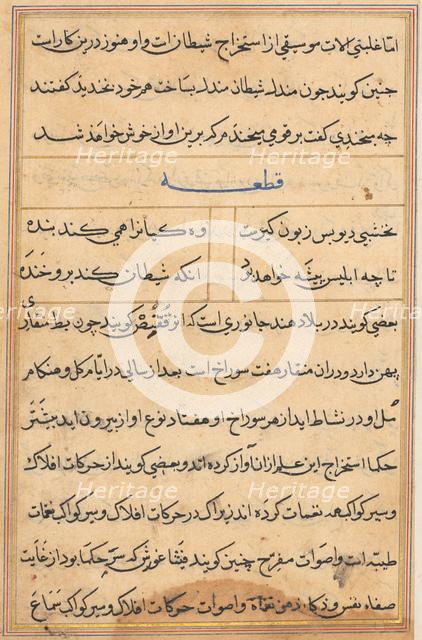 امّا غلبتی آلات موسیقی از استخراج شیطان است و او هنوز درین کار است
چنین کویند چون مندل شیطان مندل بساخت هر خود بخندید کفتند
چه میخندی کفت بر قومی میخندم که برین اواز خوش خواهند شد
قطعه
نخشبی دیو بس زبون کیرست
وه کیانراهمی کند بنده
تا چه ابلیس پیشه خواهد بود
آنکه شیطان کند برو خنده
بعضی کویند در بلاد هند جانوری است که انرا ققنس کویند چون بط منقاری
پهن دارد و در ان منقار هفت سوراخ است بعد از سالی در ایام کل و هنکام
مُل و در نشاط اید از هر سوراخ او هفتاد نوع اواز بیرون اید بیشتر
حکما استخراج این علم از ان آواز کرده اند و بعضی کویند از حرکات افلاک
و سیر کواکب نغمات کرده اند زیراک در حرکات افلاک و سیر کواکب نغمات
طیبه است و اصوات مفرح چنین کویند فیثاغورش که سر حکما بود از غایت
صفاء نفس و ذکاء ذهن نغماة و اصوات حرکات افلاک و سیر کواکب سماع
Heritage
Heritage
Heritage
Heritage
Heritage
Heritage
Heritage